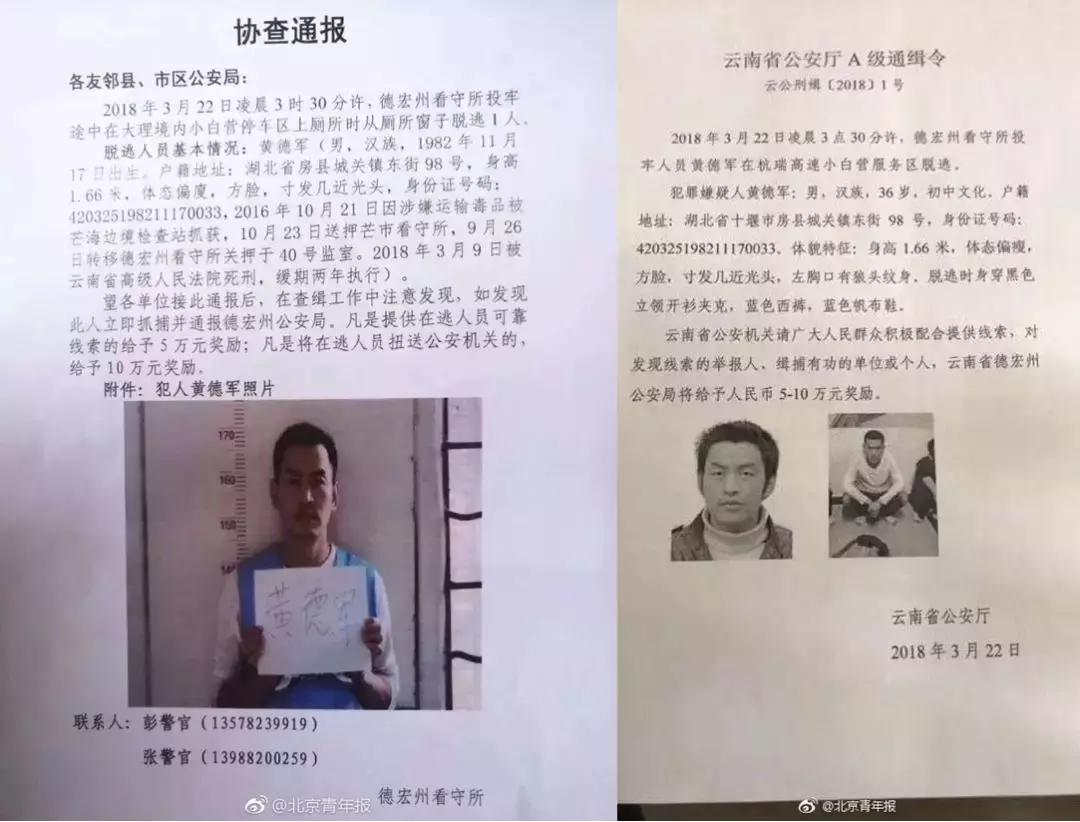 协查通报
各友邻县、市区公安局：
2018年3月22日凌晨3时30分许，德宏州看守所投牢
途中在大理境内小白营停车区上厕所时从厕所窗子脱逃1人。
脱逃人员基本情况：黄德军（男，汉族，1982年11月
17日出生。户籍地址：湖北省房县城关镇东街98号，身高
1.66米，体态偏廋，方脸，寸发几近光头，身份证号码：
420325198211170033，2016年10月21日因涉嫌运输毒品被
芒海边境检查站抓获，10月23日送押芒市看守所，9月26
日转移德宏州看守所关押于40号监室。2018年3月9日被
云南省高级人民法院死刑，缓期两年执行）。
望各单位接此通报后，在查缉工作中注意发现，如发现
此人立即抓捕并通报德宏州公安局。凡是提供在逃人员可靠
线索的给予5万元奖励；凡是将在逃人员扭送公安机关的，
给予10万元奖励。
附件：犯人黄德军照片
170
160
150
14
黄德军
联系人：彭警官（13578239919）
张警官（13988200259）
德宏州看守所
@北京青年报
云南省公安厅A级通缉令
云公刑缉〔2018〕1号
2018年3月22日凌晨3点30分许，德宏州看守所投
牢人员黄德军在杭瑞高速小白营服务区脱逃。
犯罪嫌疑人黄德军：男，汉族，36岁，初中文化，户籍
地址：湖北省十堰市房县城关镇东街98号，身份证号码：
420325198211170033。体貌特征：身高1.66米，体态偏瘦，
方脸，寸发几近光头，左胸口有狼头纹身。脱逃时身穿黑色
立领开衫夹克，蓝色西裤，蓝色帆布鞋。
云南省公安机关请广大人民群众积极配合提供线索，对
发现线索的举报人、缉捕有功的单位或个人，云南省德宏州
公安局将给予人民币5-10万元奖励。
云南省公安厅
2018年3月22日
@北京青年报